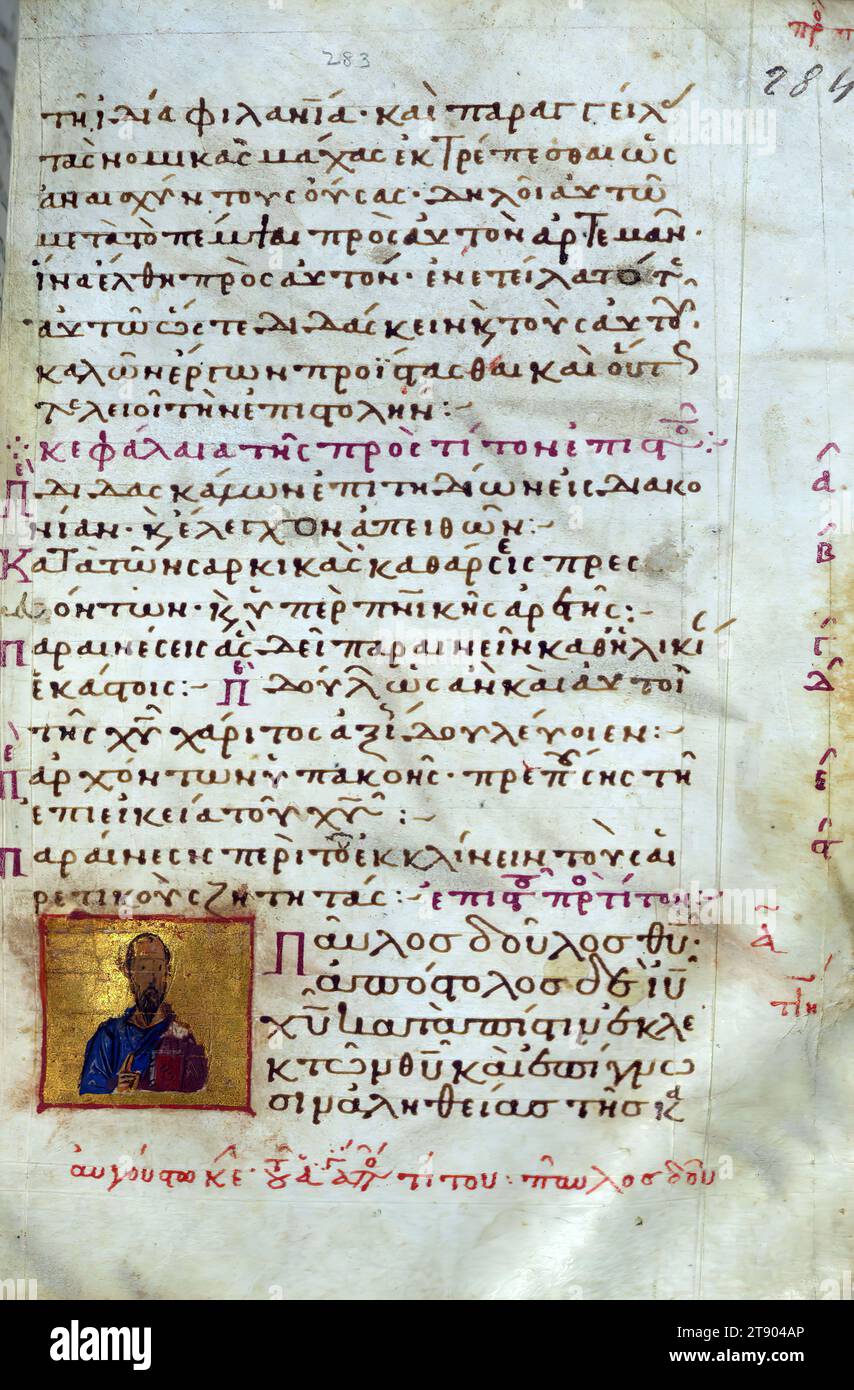 283
284
τῆι ἰδία φιλανίᾳ· καὶ παραγγείλ
τὰς νομικὰς μάχας ἐκτρέπεσθαι ὡς
ἀναισχύντους οὔσας· δηλοῖ αὐτῶ
μετὰ τὸ πέμψαι πρὸς αὐτὸν ἀρτεμᾶν·
ἵνα ἔλθη πρὸς αὐτόν· ἐνετείλατο
αὐτῶ ὥστε διδάσκειν κ τοὺς αὐτοῦ·
καλῶν ἔργων προΐστασθαι καὶ οὕτς
τελειοῖ τὴν ἐπιστολήν:~
κεφάλαια τῆς πρὸς τίτον ἐπιστο:
Π διδασκάλων ἐπιτηδίων εἰς διακο
νίαν· κ ἔλεγχον ἀπειθῶν:~
Κατὰ τῶν σαρκικὰς καθάρσεις πρεσ
βόντων· κ ὑπὲρ πνικῆς ἀρετῆς:~
Παραινέσεις ἃς δεῖ παραινεῖν καθ ἡλικί
ἑκάστοις:~ Π δούλ ὡς ἂν καὶ αὐτοὶ
τῆς χυ χάριτος ἄξι δουλεύοιεν:~
Π ἀρχόντων ὑπακοῆς· πρεπούσης τῆ
ἐπιεικεία τοῦ χυ:~
Παραίνεση περὶ τοῦ ἐκκλίνειν τοὺς αἱ
ρετικοὺς ζητητάς:~ ἐπιστ πρ τίτον:~
Παῦλος δοῦλος θυ·
ἀπόστολος δὲ ιυ
χυ κατὰ πίστιν ἐκλε
κτῶν θυ καὶ ἐπίγνω
σιν ἀληθείας τῆς κα
αὐγούστω κε· τίτου: παῦλος δοῦ
α
β
γ
δ
ε
ϛ
alamy
Image ID: 2T904AP
www.alamy.com